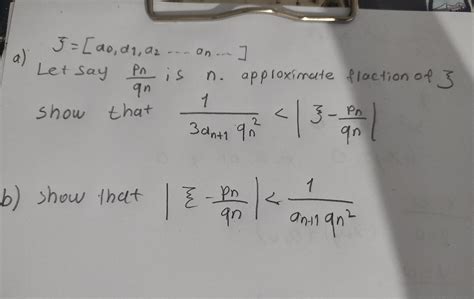 ξ = [a0, a1, a2 ---- an --- ]
a) Let say pn/qn is n. approximate fraction of ξ
show that 1/(3an+1 qn²) < | ξ - pn/qn |
b) show that | ξ - pn/qn | < 1/(an+1 qn²)